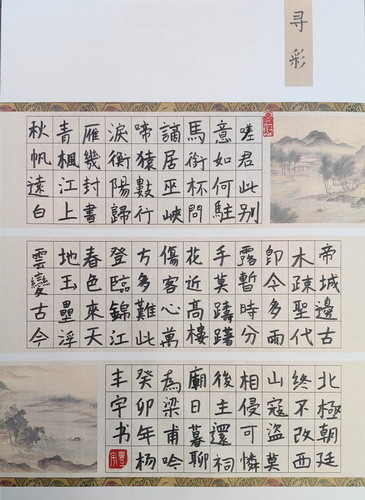 寻彩
嗟君此别
意如何駐
馬銜杯問
謫居巫峽
啼猿數行
淚衡陽歸
雁幾封書
青楓江上
秋帆遠白
帝城邊古
木疎聖代
即今多雨
露暫時分
手莫躊躇
花近高樓
傷客心萬
方多難此
登臨錦江
春色來天
地玉壘浮
雲變古今
北極朝廷
終不改西
山寇盗莫
相侵可憐
後主還祠
廟日暮聊
為梁甫吟
癸卯年杨
丰宇书